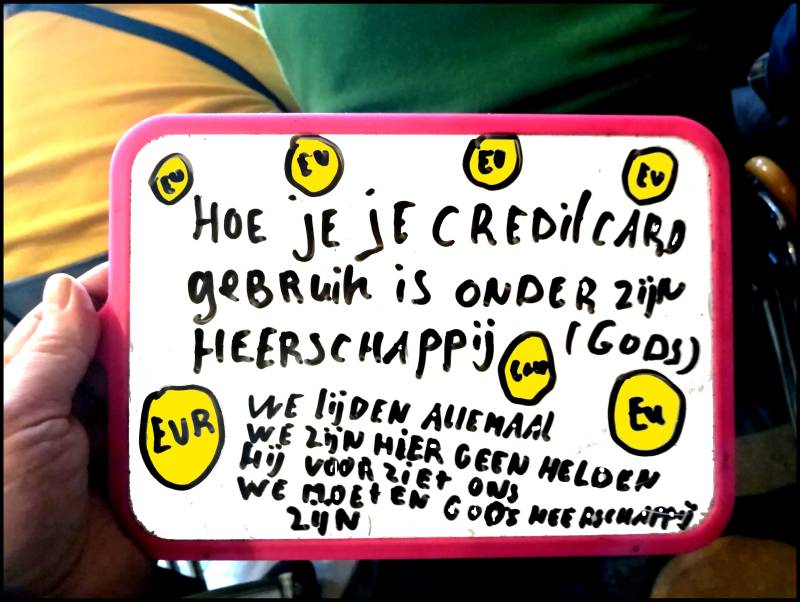 EU EU EU EU
HOE je jE CREDitCARD
geBRuik is ONDER zijn
HEERSCHAppij (GODS)
EUR EU
WE lijDEN AllEMAAl
WE zijN HiER GEEN HELDEN
Hij VOORziEt ONS
WE MOEtEN GODS HEERSCHAppij
ZijN